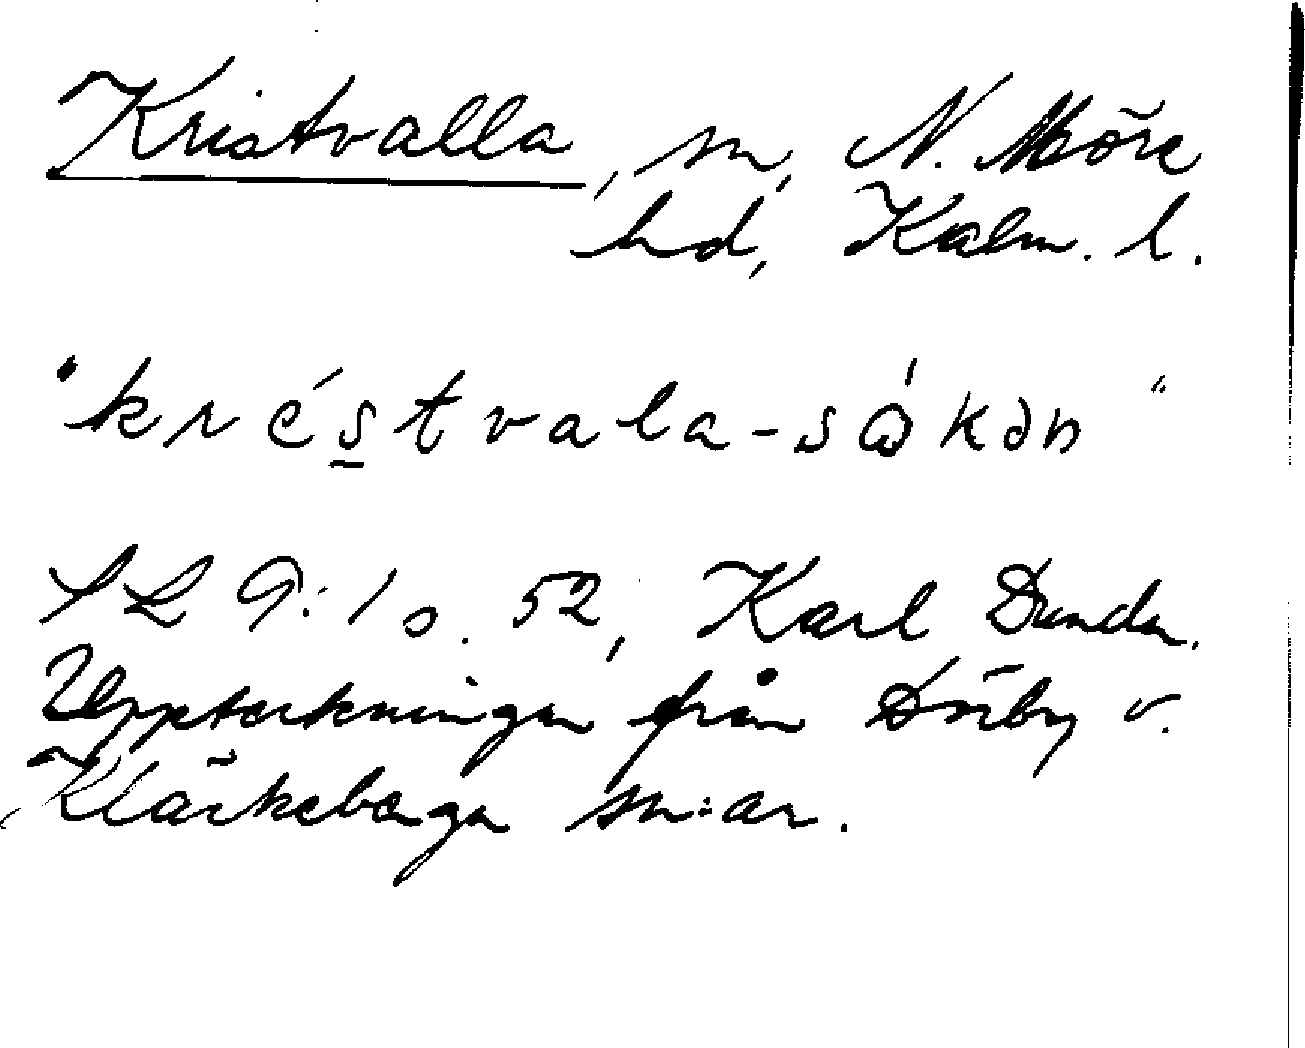 Kristvalla, sn, N. Möre
hd, Kalm. l.
"kréstvala-sɷ́kən"
SL 9:1 s. 52, Karl Dunder.
Uppteckningar från Dörby o.
Kläckeberga sn:ar.